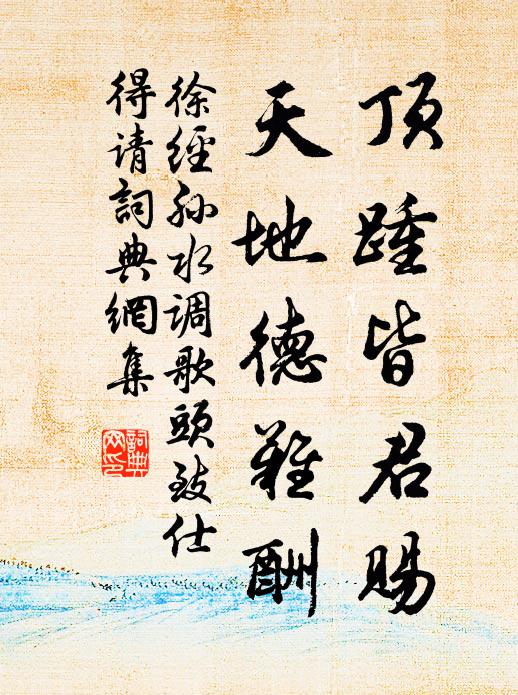 顶踵皆君赐
天地德难酬
徐經孙水调歌頭致仕
得请詞典網集
詞典
网印